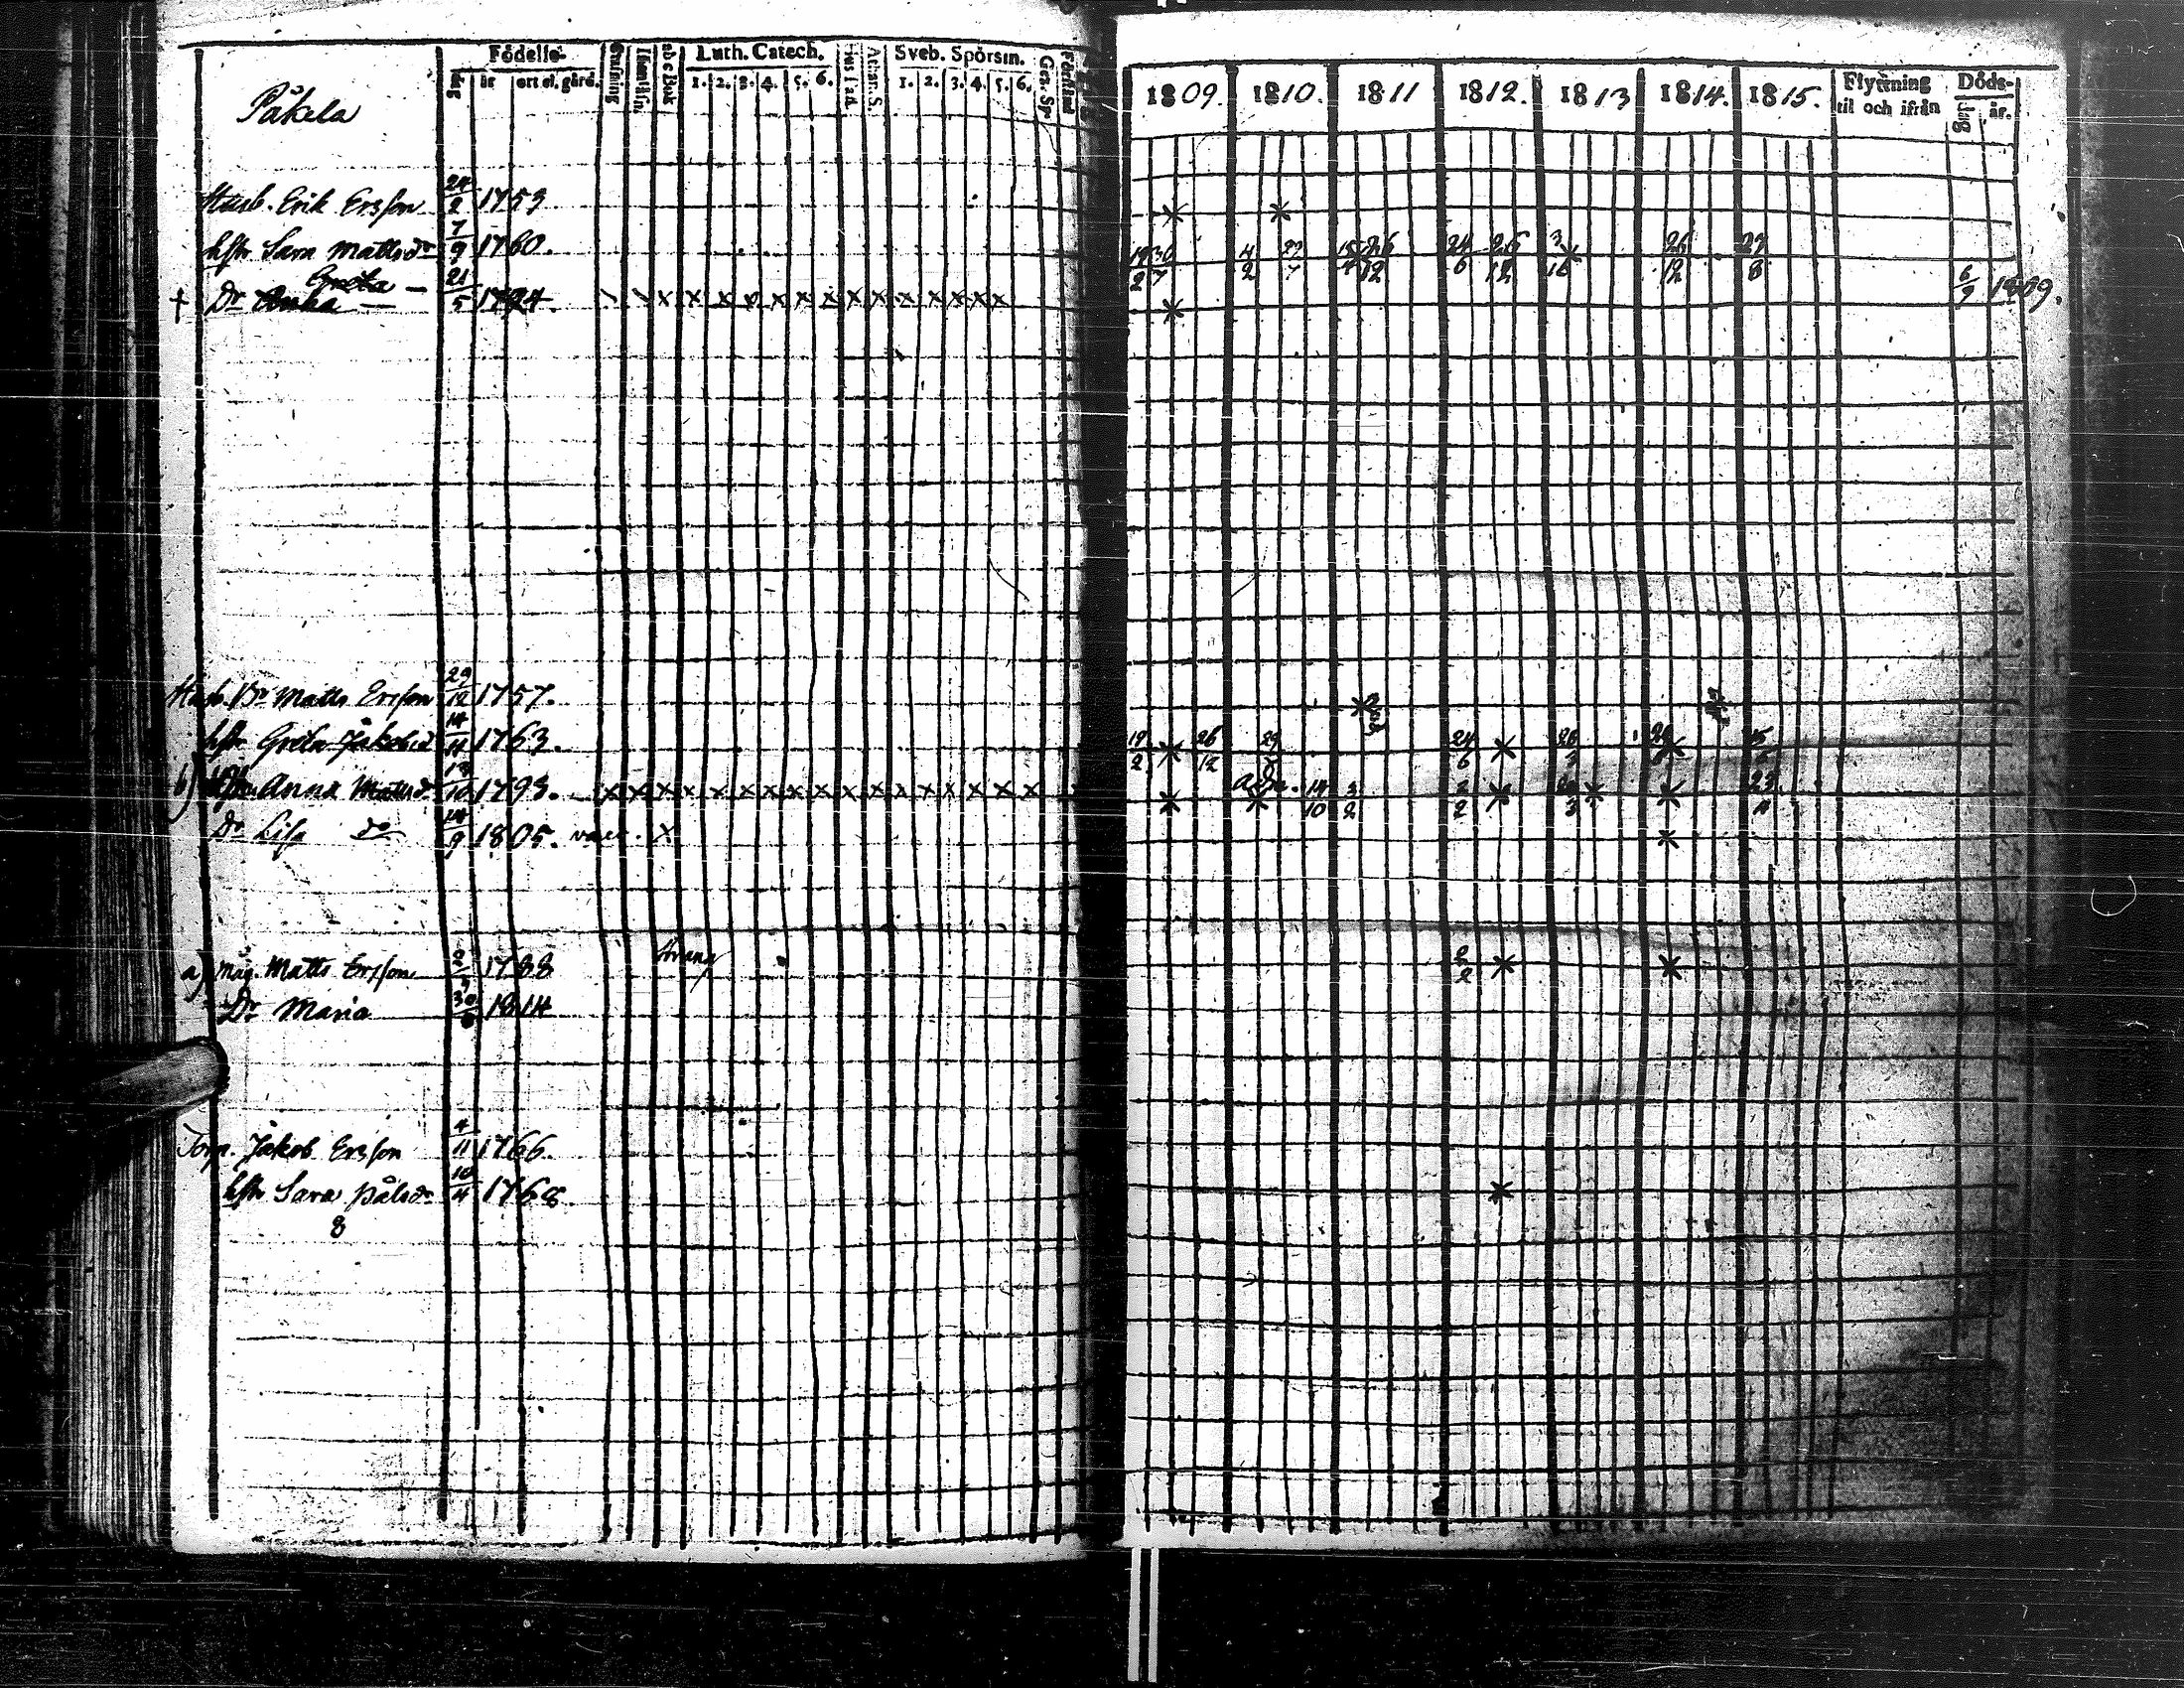 Födelse-
Luth. Catech.
Sveb. Spörsm.
dag år ort el. gård.
abc Bok
1. 2. 3. 4. 5. 6.
Athan. S.
1. 2. 3. 4. 5. 6.
1809. 1810. 1811 1812. 1813 1814. 1815.
Flyttning
til och ifrån
Döds-
dag år.
Påkela
Husb. Erik Ersson 24/2 1753
hstr Sara Mattsdr 7/9 1760. 19/2 30/7 4/2 29/7 26/12 24/6 26/12 26/12 23/8
Greta
† Dr Anna 21/5 1794. 6/9 1809.
Husb. Br Matts Ersson 29/12 1757.
hstr Greta Jakobsd 14/11 1763. 19/2 26/12 24/6
b) Anna Mattsd 13/10 1793. 14/10 3/2 2/2
Dr Lisa do 14/9 1805. vacc.
a) Måg. Matts Ersson 1788 2/2
Dr Maria 30/8 1814
Torp. Jakob Ersson 4/11 1766.
hstr Sara Pålsdr 10/4 1768.
8